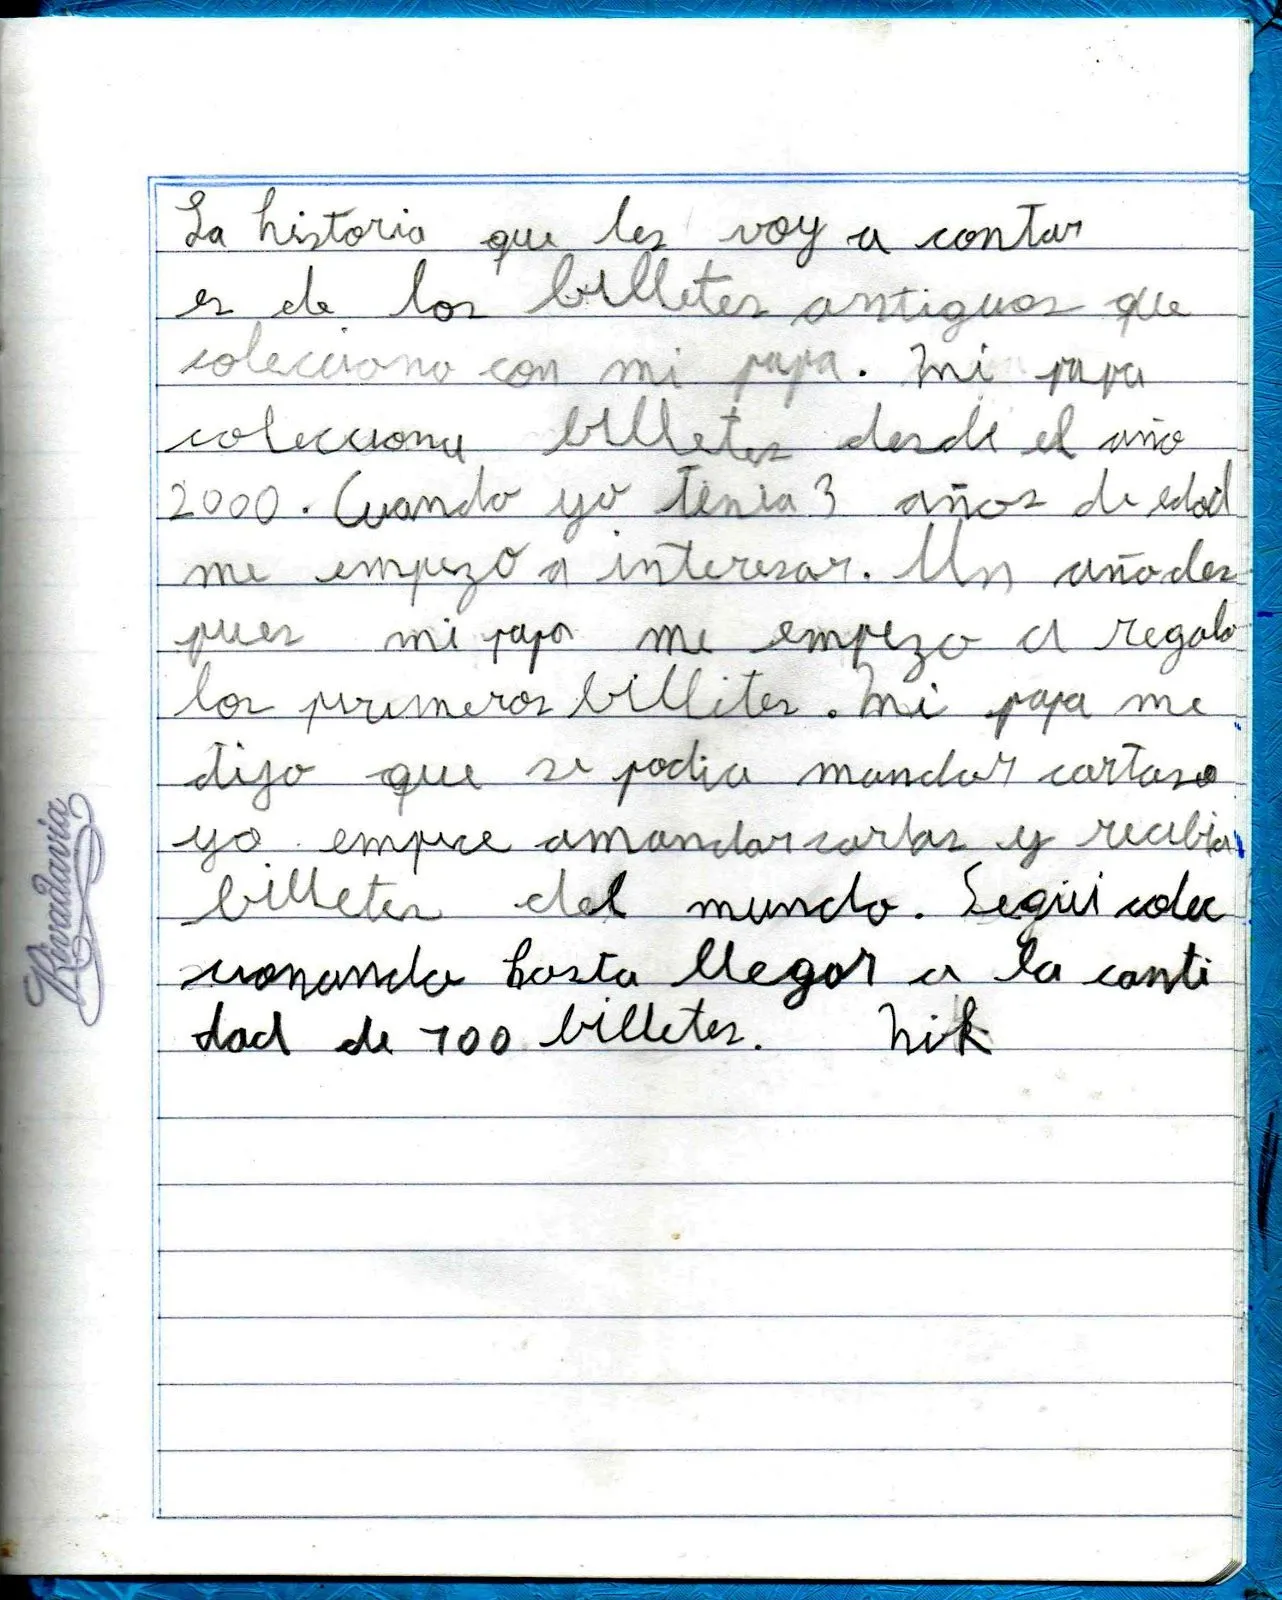 La historia que les voy a contar
es de los billetes antiguos que
colecciono con mi papa. Mi papa
colecciona billetes desde el año
2000. Cuando yo tenia 3 años de edad
me empezó a interesar. Un año des
pues mi papa me empezo a regala
los primeros billetes. Mi papa me
dijo que se podia mandar cartas
yo empece amandar cartas y recibia
billetes del mundo. Segui colec
cionando hasta llegar a la canti
dad de 700 billetes. Nik
Rivadavia